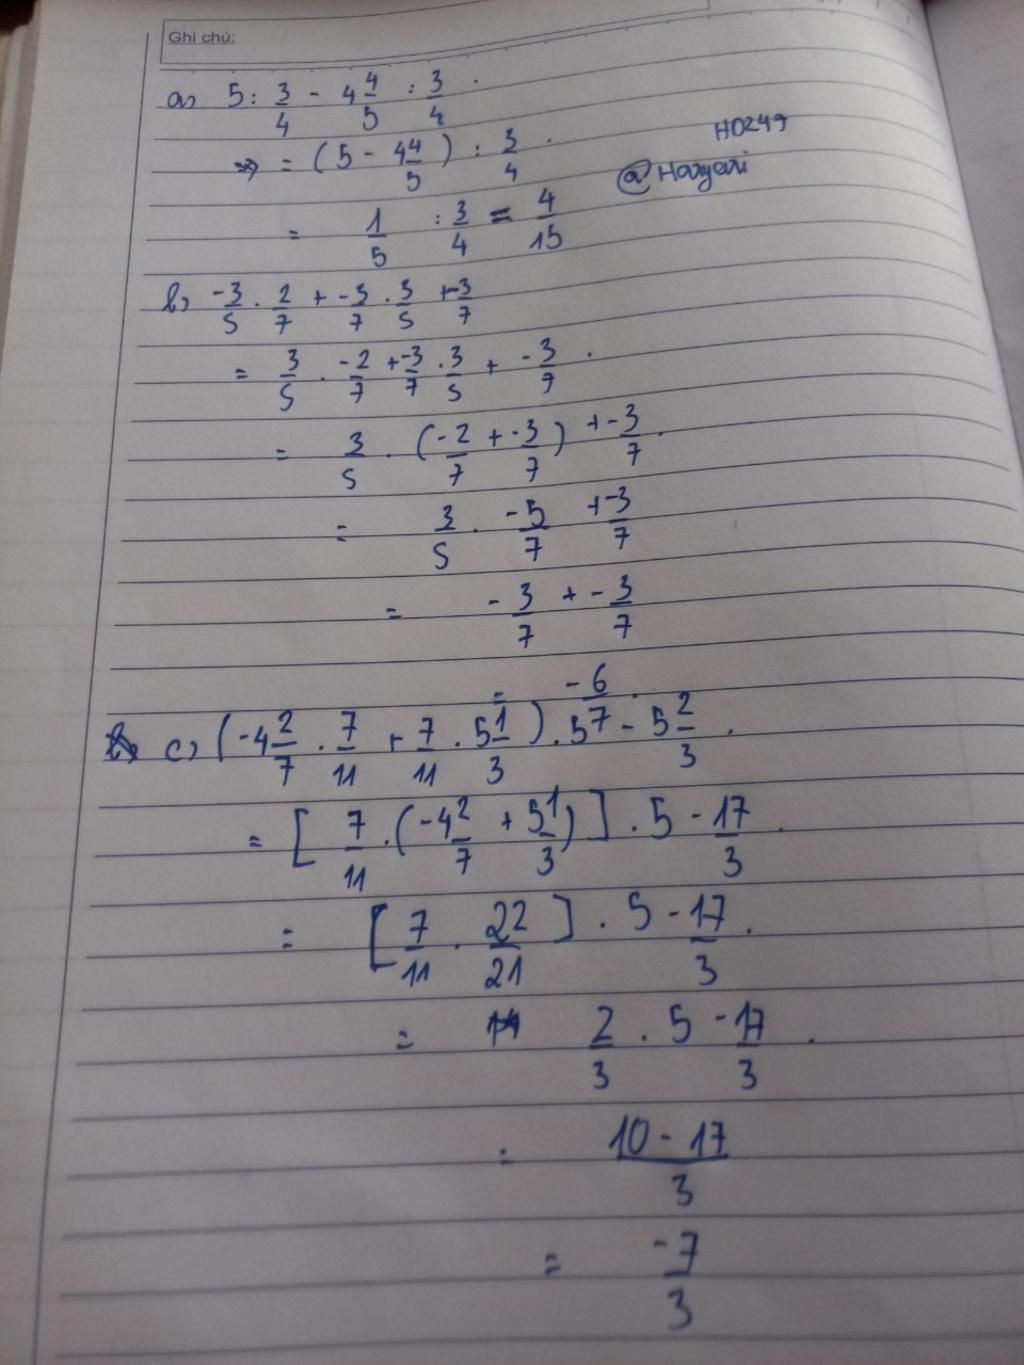 Ghi chú:
a, 5 : 3/4 - 4 4/5 : 3/4 .
=> = (5 - 4 4/5) : 3/4 .
HD249
@Haryari
= 1/5 : 3/4 = 4/15
b, -3/5 . 2/7 + -3/7 . 3/5 + -3/7
= 3/5 . -2/7 + -3/7 . 3/5 + -3/7 .
= 3/5 . (-2/7 + -3/7) + -3/7 .
= 3/5 . -5/7 + -3/7
= -3/7 + -3/7
= -6/7 .
c, (-4 2/7 . 7/11 + 7/11 . 5 1/3) . 5 - 5 2/3 .
= [7/11 . (-4 2/7 + 5 1/3)] . 5 - 17/3 .
= [7/11 . 22/21] . 5 - 17/3 .
= 2/3 . 5 - 17/3 .
= 10 - 17/3
= -7/3